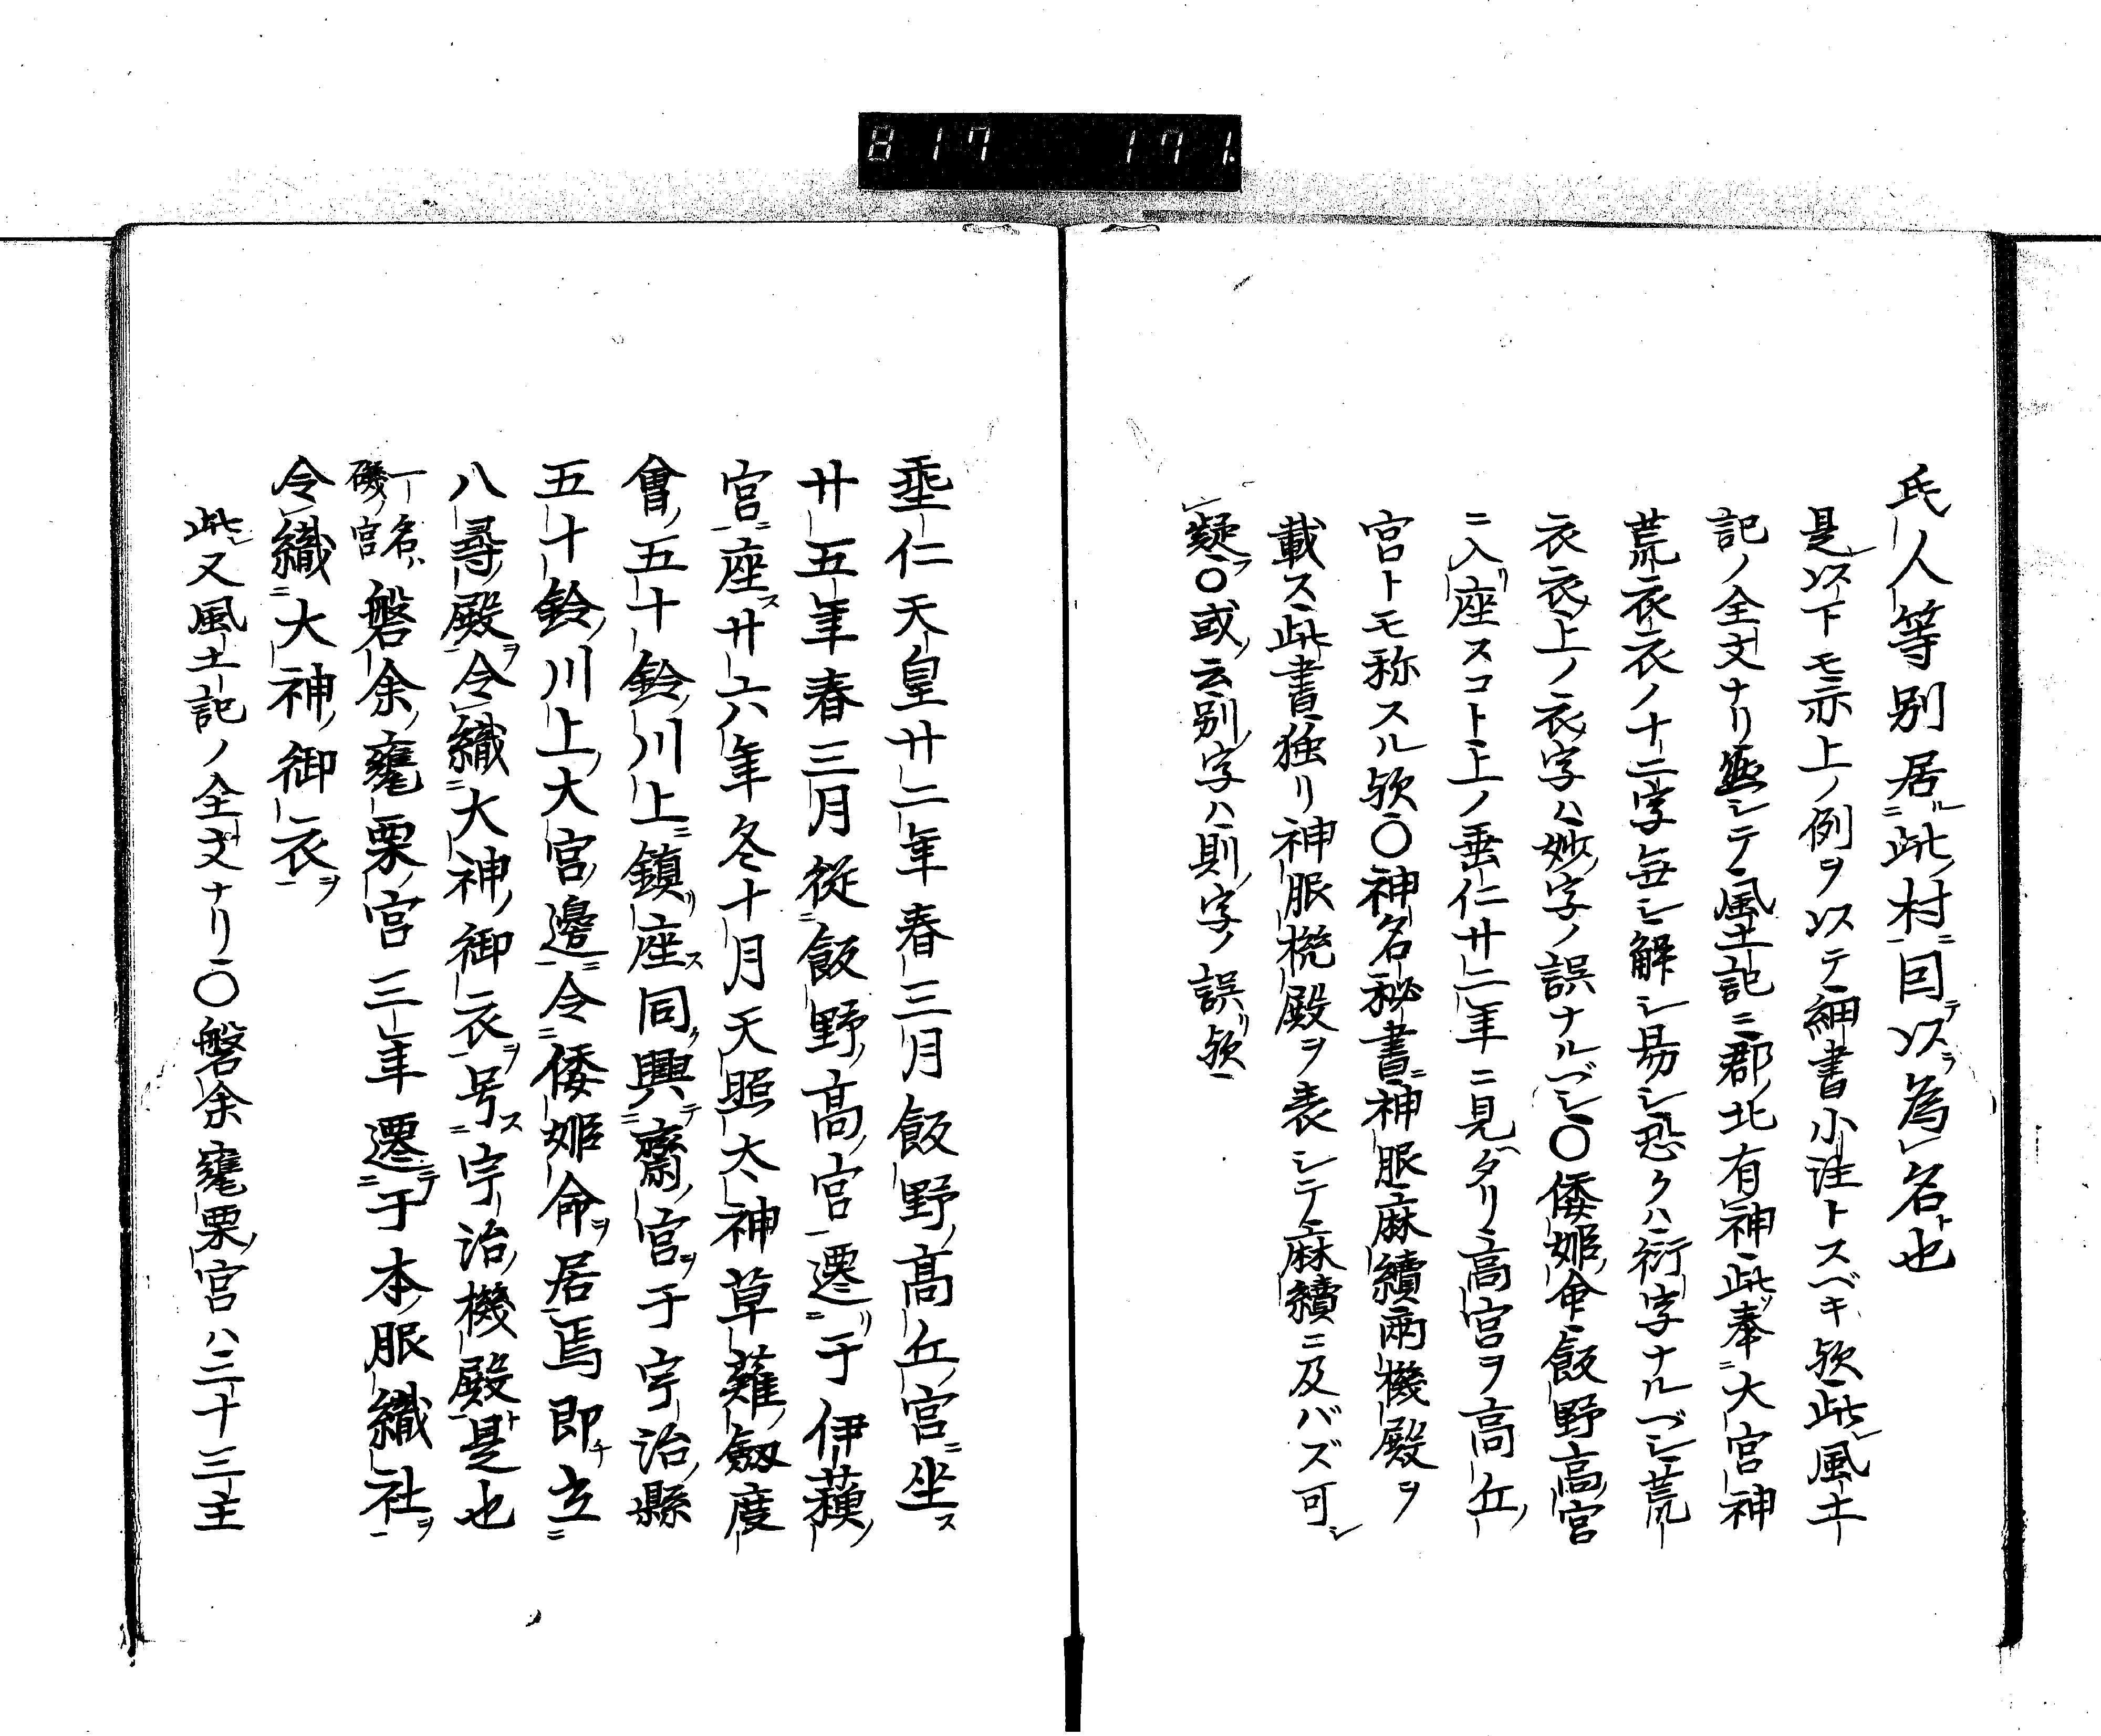 817 171.
氏人等別居此村因以為名也
是以下モ亦上ノ例ヲ以テ細書小注トスベキ欤此風土
記ノ全文ナリ並シテ風土記ニ郡北有神此奉大宮神
荒衣衣ノ十二字無シ解シ易シ恐クハ衍字ナルベシ荒
衣衣上ノ衣字ハ妙字ノ誤ナルベシ〇倭姫命飯野高宮
ニ入座スコト上ノ垂仁廿二年ニ見ダリ高宮ヲ高丘
宮トモ称スル欤〇神名秘書神服麻績両機殿ヲ
載ス此書独リ神服機殿ヲ表シテ麻績ニ及バズ可シ
疑フ〇或云別字ハ則字ノ誤リ欤
垂仁天皇廿二年春三月飯野高丘宮ニ坐ス
廿五年春三月従飯野高宮遷リ于伊蘓
宮ニ座ス廿六年冬十月天照太神草薙劔度
會五十鈴川上ニ鎮リ座ス同ク興テ齋宮ヲ于宇治縣
五十鈴川上大宮邊ニ令倭姫命ヲ居焉即チ立
八尋殿ヲ令織大神御衣ヲ号ス宇治機殿ト是也
一名ハ磯宮磐余甕栗宮三年遷テ于本服織社ヲ
令織大神御衣ヲ
此又風土記ノ全文ナリ〇磐余甕栗宮ハ二十三主